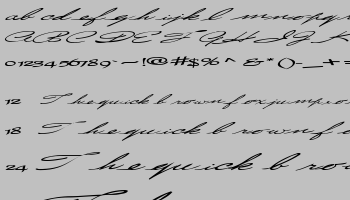 ab cd ef gh ijkl mnopqr
ABCDEFGHIJK
0123456789~!@#$%^&*()-_+=
12 The quick brown fox jumps o
18 The quick brown fo
24 The quick bro